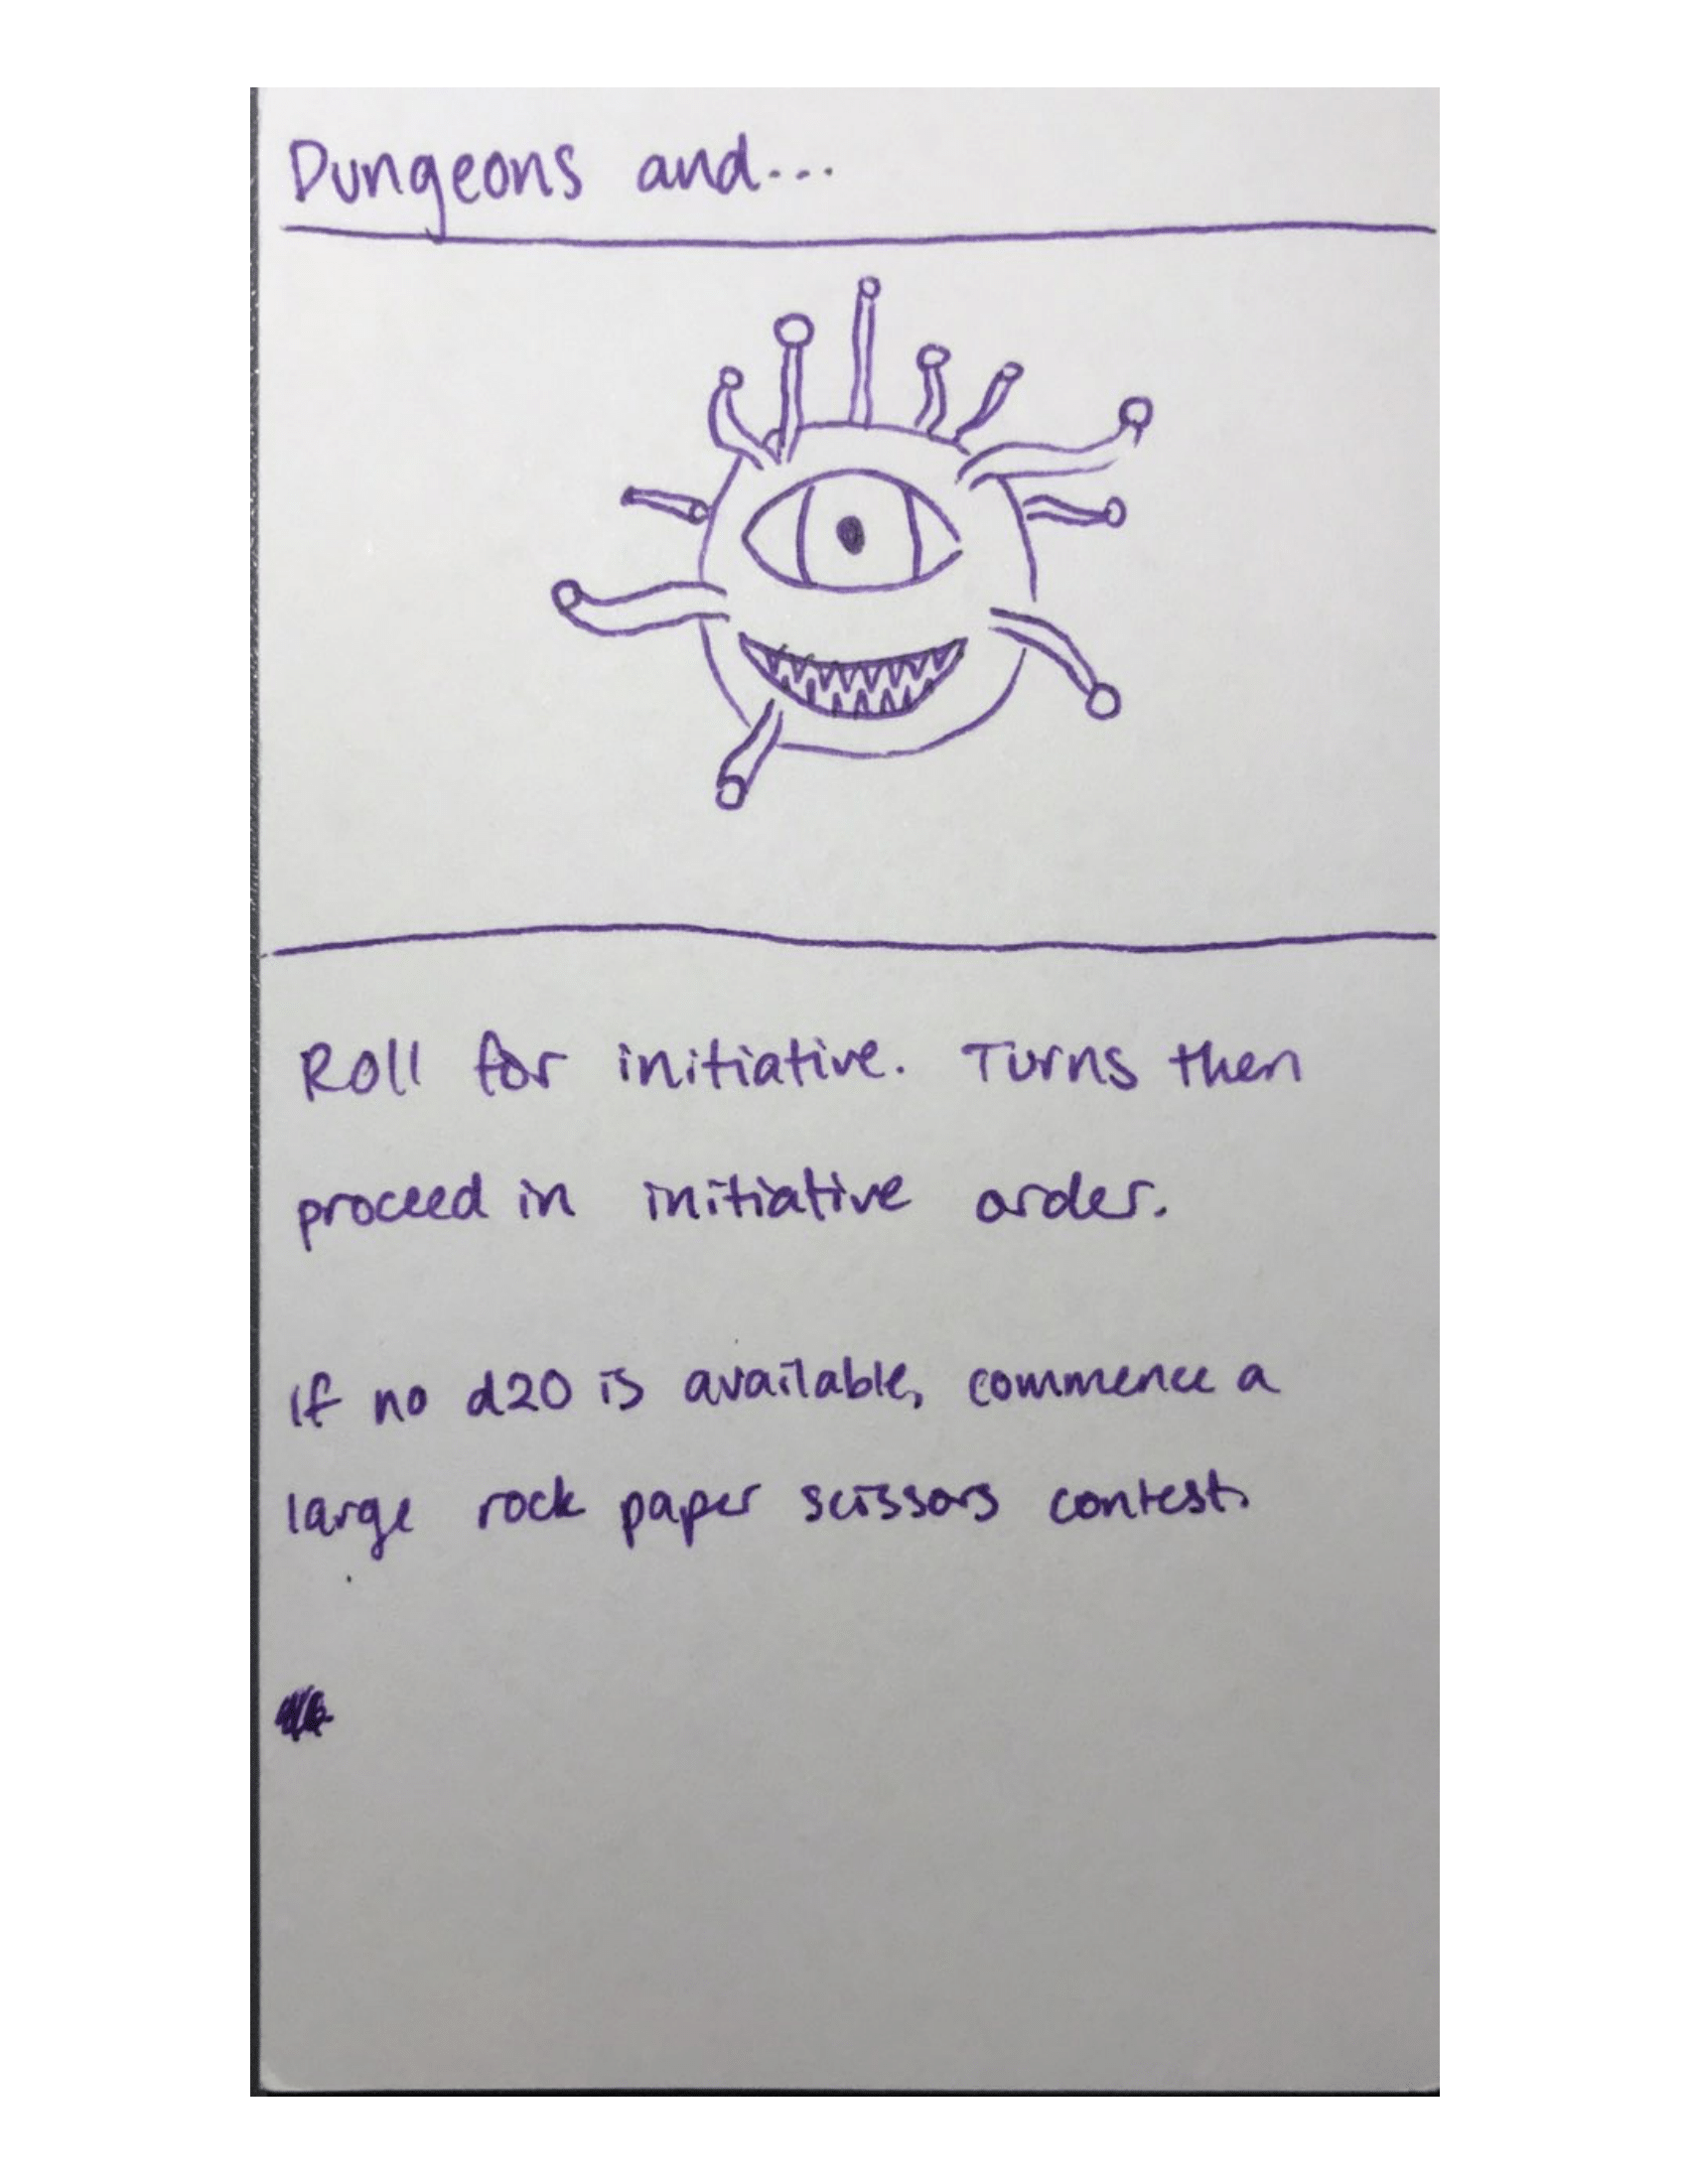 Dungeons and...
Roll for initiative. Turns then
proceed in initiative order.
If no d20 is available, commence a
large rock paper scissors contest.